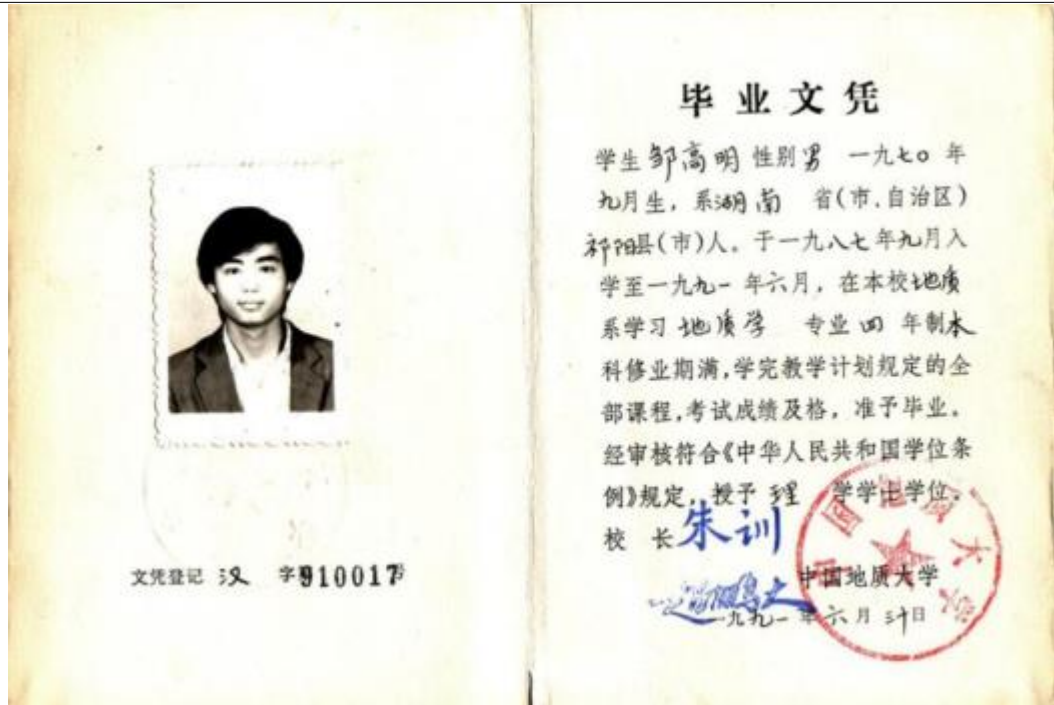 文凭登记 汉 字第910017号
毕业文凭
学生邹高明 性别男 一九七〇年
九月生，系湖南 省(市、自治区)
祁阳县(市)人。于一九八七年九月入
学至一九九一年六月，在本校地质
系学习 地质学 专业四年制本
科修业期满，学完教学计划规定的全
部课程，考试成绩及格，准予毕业。
经审核符合《中华人民共和国学位条
例》规定，授予 理 学学士学位。
校 长 朱训
中国地质大学
一九九一年六月卅日
中国地质大学